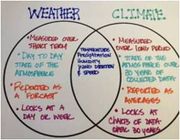 WEATHER
CLIMATE
• MEASURED OVER
SHORT TERM
• DAY TO DAY
STATE OF THE
ATMOSPHERE
• REPORTED AS
A FORECAST
• LOOKS AT A
DAY OR WEEK
TEMPERATURE
PRECIPITATION
HUMIDITY
WIND DIRECTION
& SPEED
• MEASURED
OVER LONG PERIOD
• STATE OF THE
ATMOSPHERE OVER
30 YEAR OF
COLLECTED DATA
• REPORTED AS
AVERAGES
• LOOKS AT
CHARTS OF DATA
30 YEARS